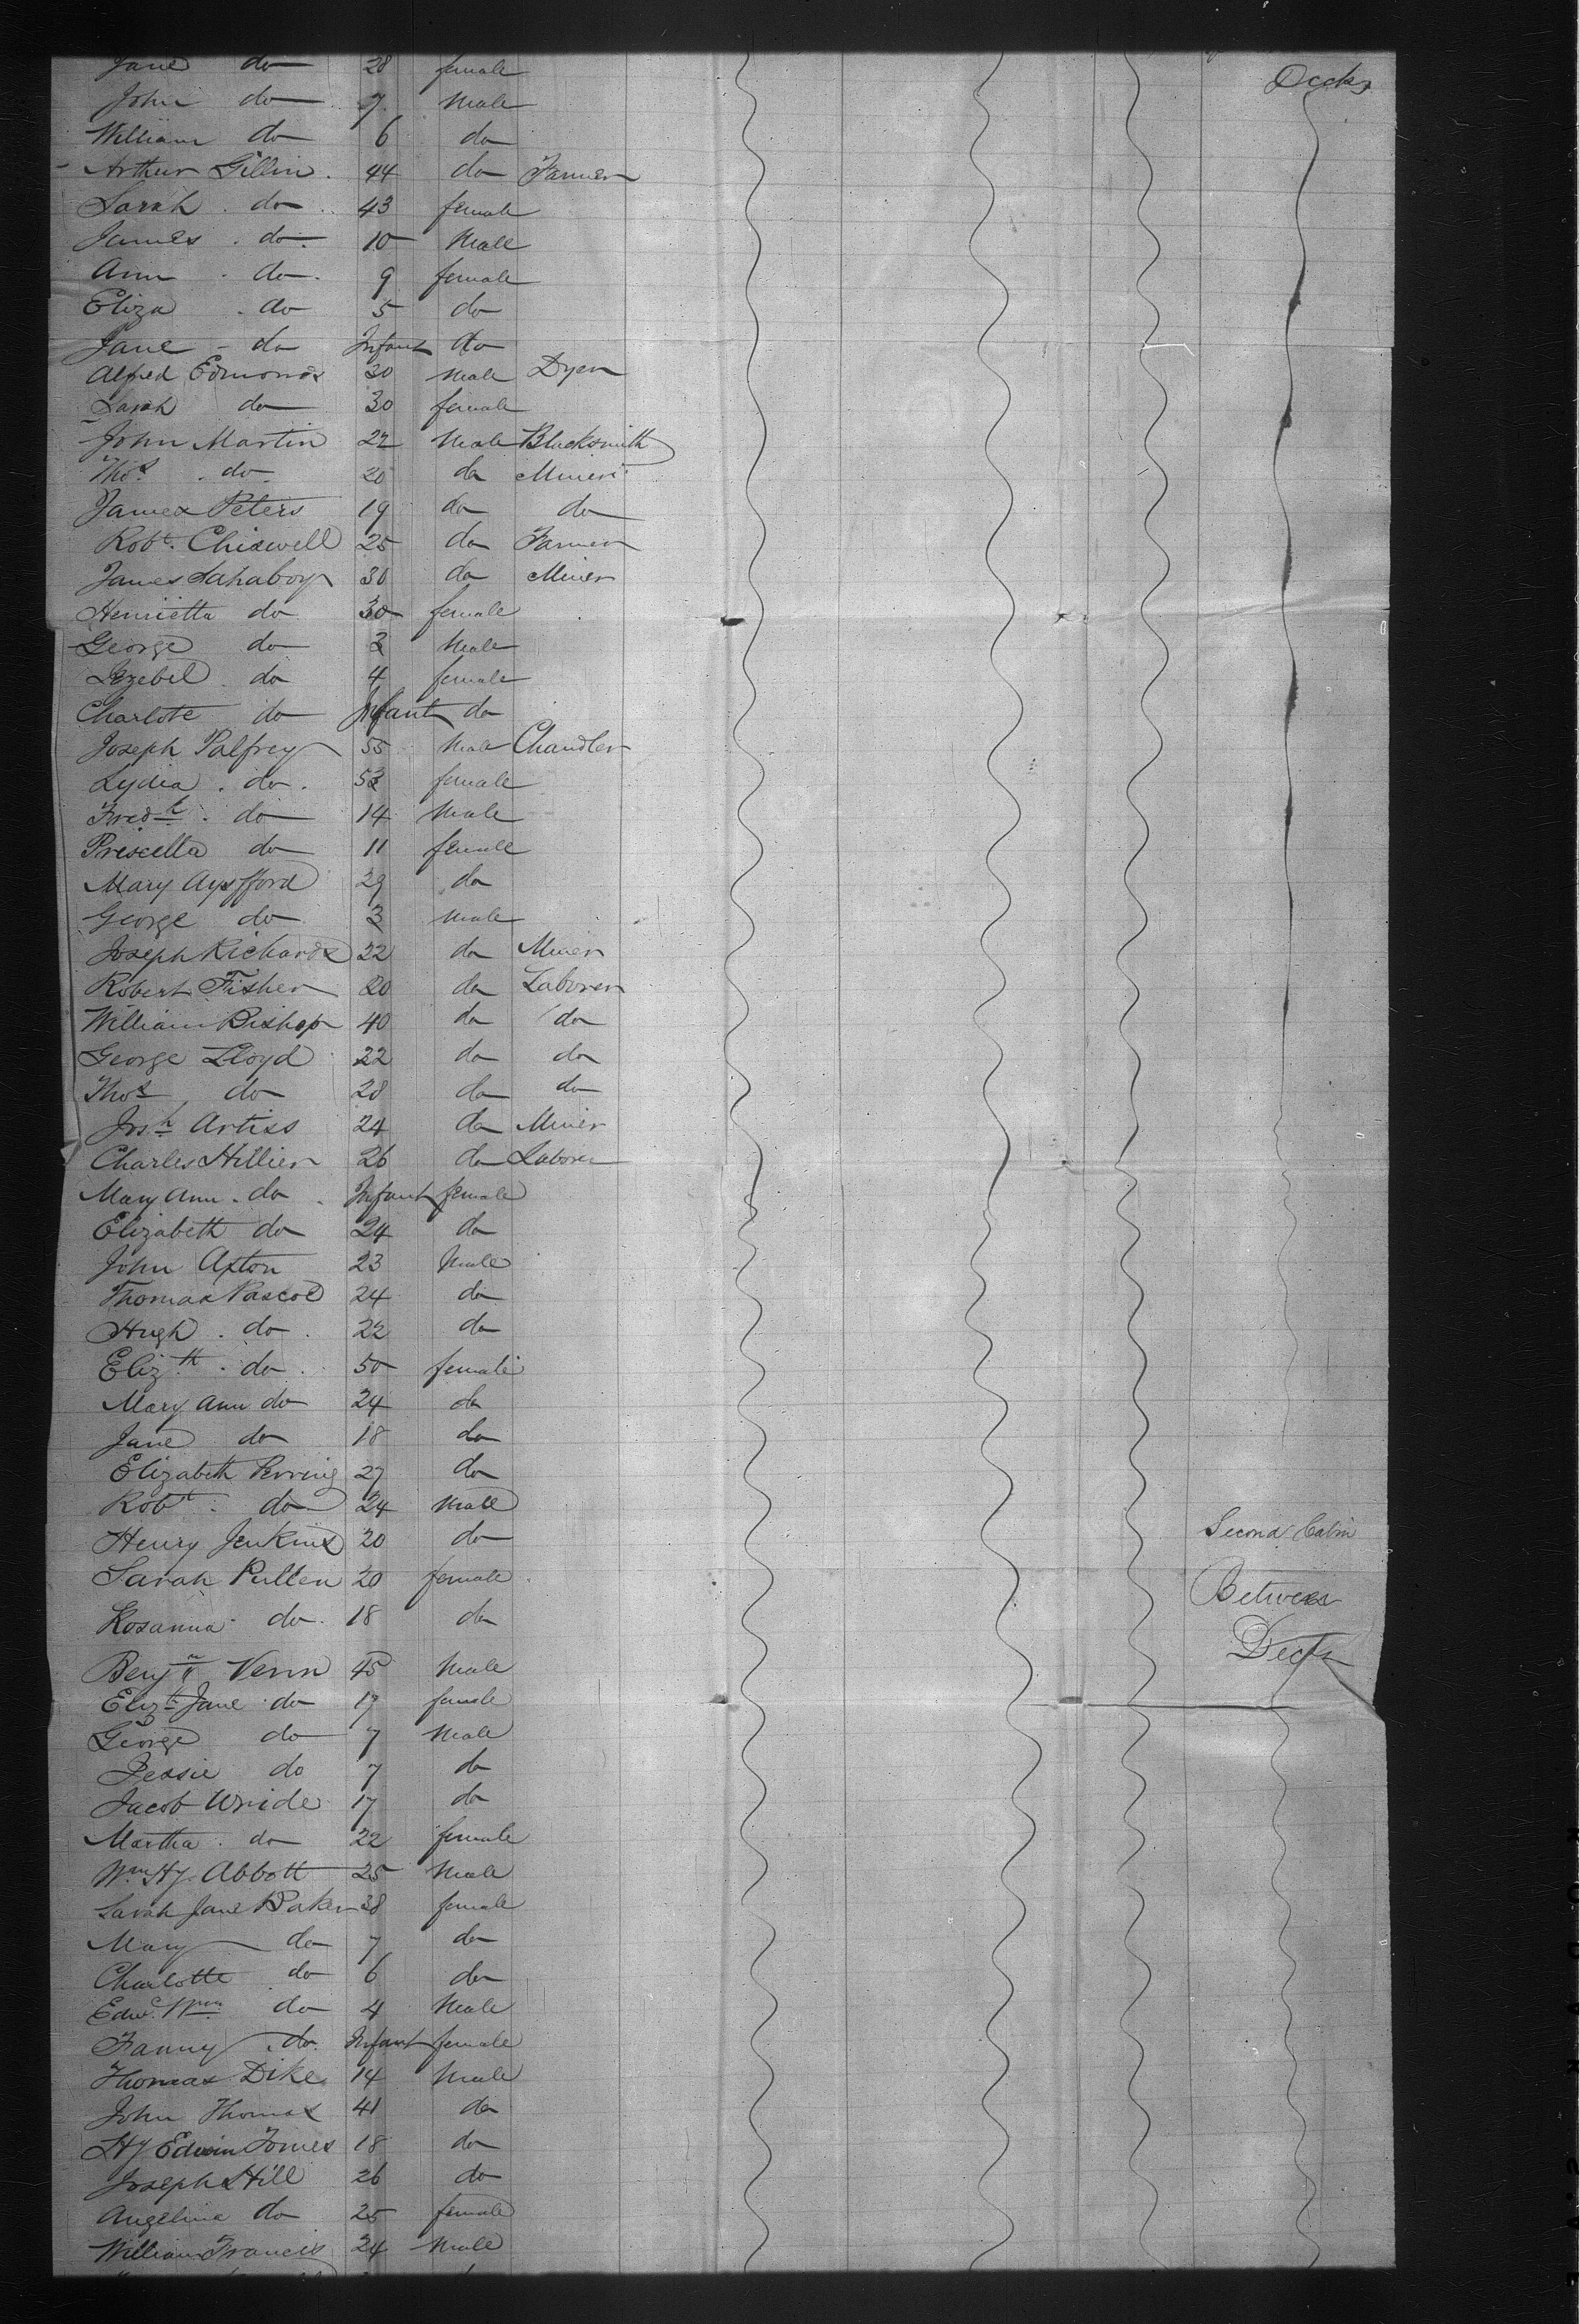 Jane do 28 female
Decks
John do 7 Male
William do 6 do
Arthur Gillin 44 do Farmer
Sarah do 43 female
James do 10 Male
Ann do 9 female
Eliza do 5 do
Jane do Infant do
Alfred Edmonds 30 Male Dyer
Sarah do 30 female
John Martin 22 Male Blacksmith
Thos do 20 do Miner
James Peters 19 do do
Robt. Chiswell 25 do Farmer
James 30 do Miner
Henrietta do 30 female
George do 3 Male
Jezebel do 4 female
Charlote do Infant do
Joseph Palfrey 55 Male Chandler
Lydia do 53 female
Fredk do 14 Male
Priscilla do 11 female
Mary 29 do
George do 3 Male
Joseph Richards 22 do Miner
Robert Fisher 20 do Laborer
William Bishop 40 do do
George Lloyd 22 do do
Thos do 28 do do
Josh Artiss 24 do Miner
Charles Hillier 26 do Laborer
Mary Ann do Infant female
Elizabeth do 24 do
John Axton 23 Male
Thomas Pascoe 24 do
Hugh do 22 do
Elizth do 50 female
Mary Ann do 24 do
Jane do 18 do
Elizabeth 27 do
Robt do 24 Male
Henry Jenkins 20 do Second Cabin
Sarah Pullen 20 female Between
Rosanna do 18 do Decks
Benjn Venn 45 Male
Elizth Jane do 19 female
George do 7 Male
Jessie do 7 do
Jacob Wride 17 do
Martha do 22 female
Wm Hy Abbott 25 Male
Sarah Jane Baker 38 female
Mary do 7 do
Charlotte do 6 do
Edwd Wm do 4 Male
Fanny do Infant female
Thomas Dike 14 Male
John Thomas 41 do
Hy Edwin Tomes 18 do
Joseph Hill 26 do
Angelina do 25 female
William Francis 24 Male